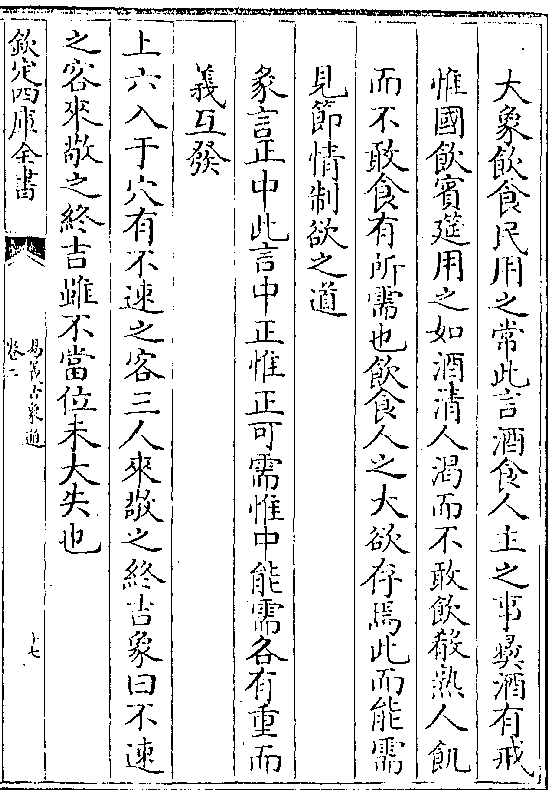 大象飲食民用之常此言酒食人主之事羙酒有戒
惟國飲賓筵用之如酒清人渴而不敢飲殽熟人飢
而不敢食有所需也飲食人之大欲存焉此而能需
見節情制欲之道
彖言正中此言中正惟正可需惟中能需各有重而
義互發
上六入于穴有不速之客三人來敬之終吉象曰不速
之客來敬之終吉雖不當位未大失也
欽定四庫全書
易舊古象通
卷二
十七